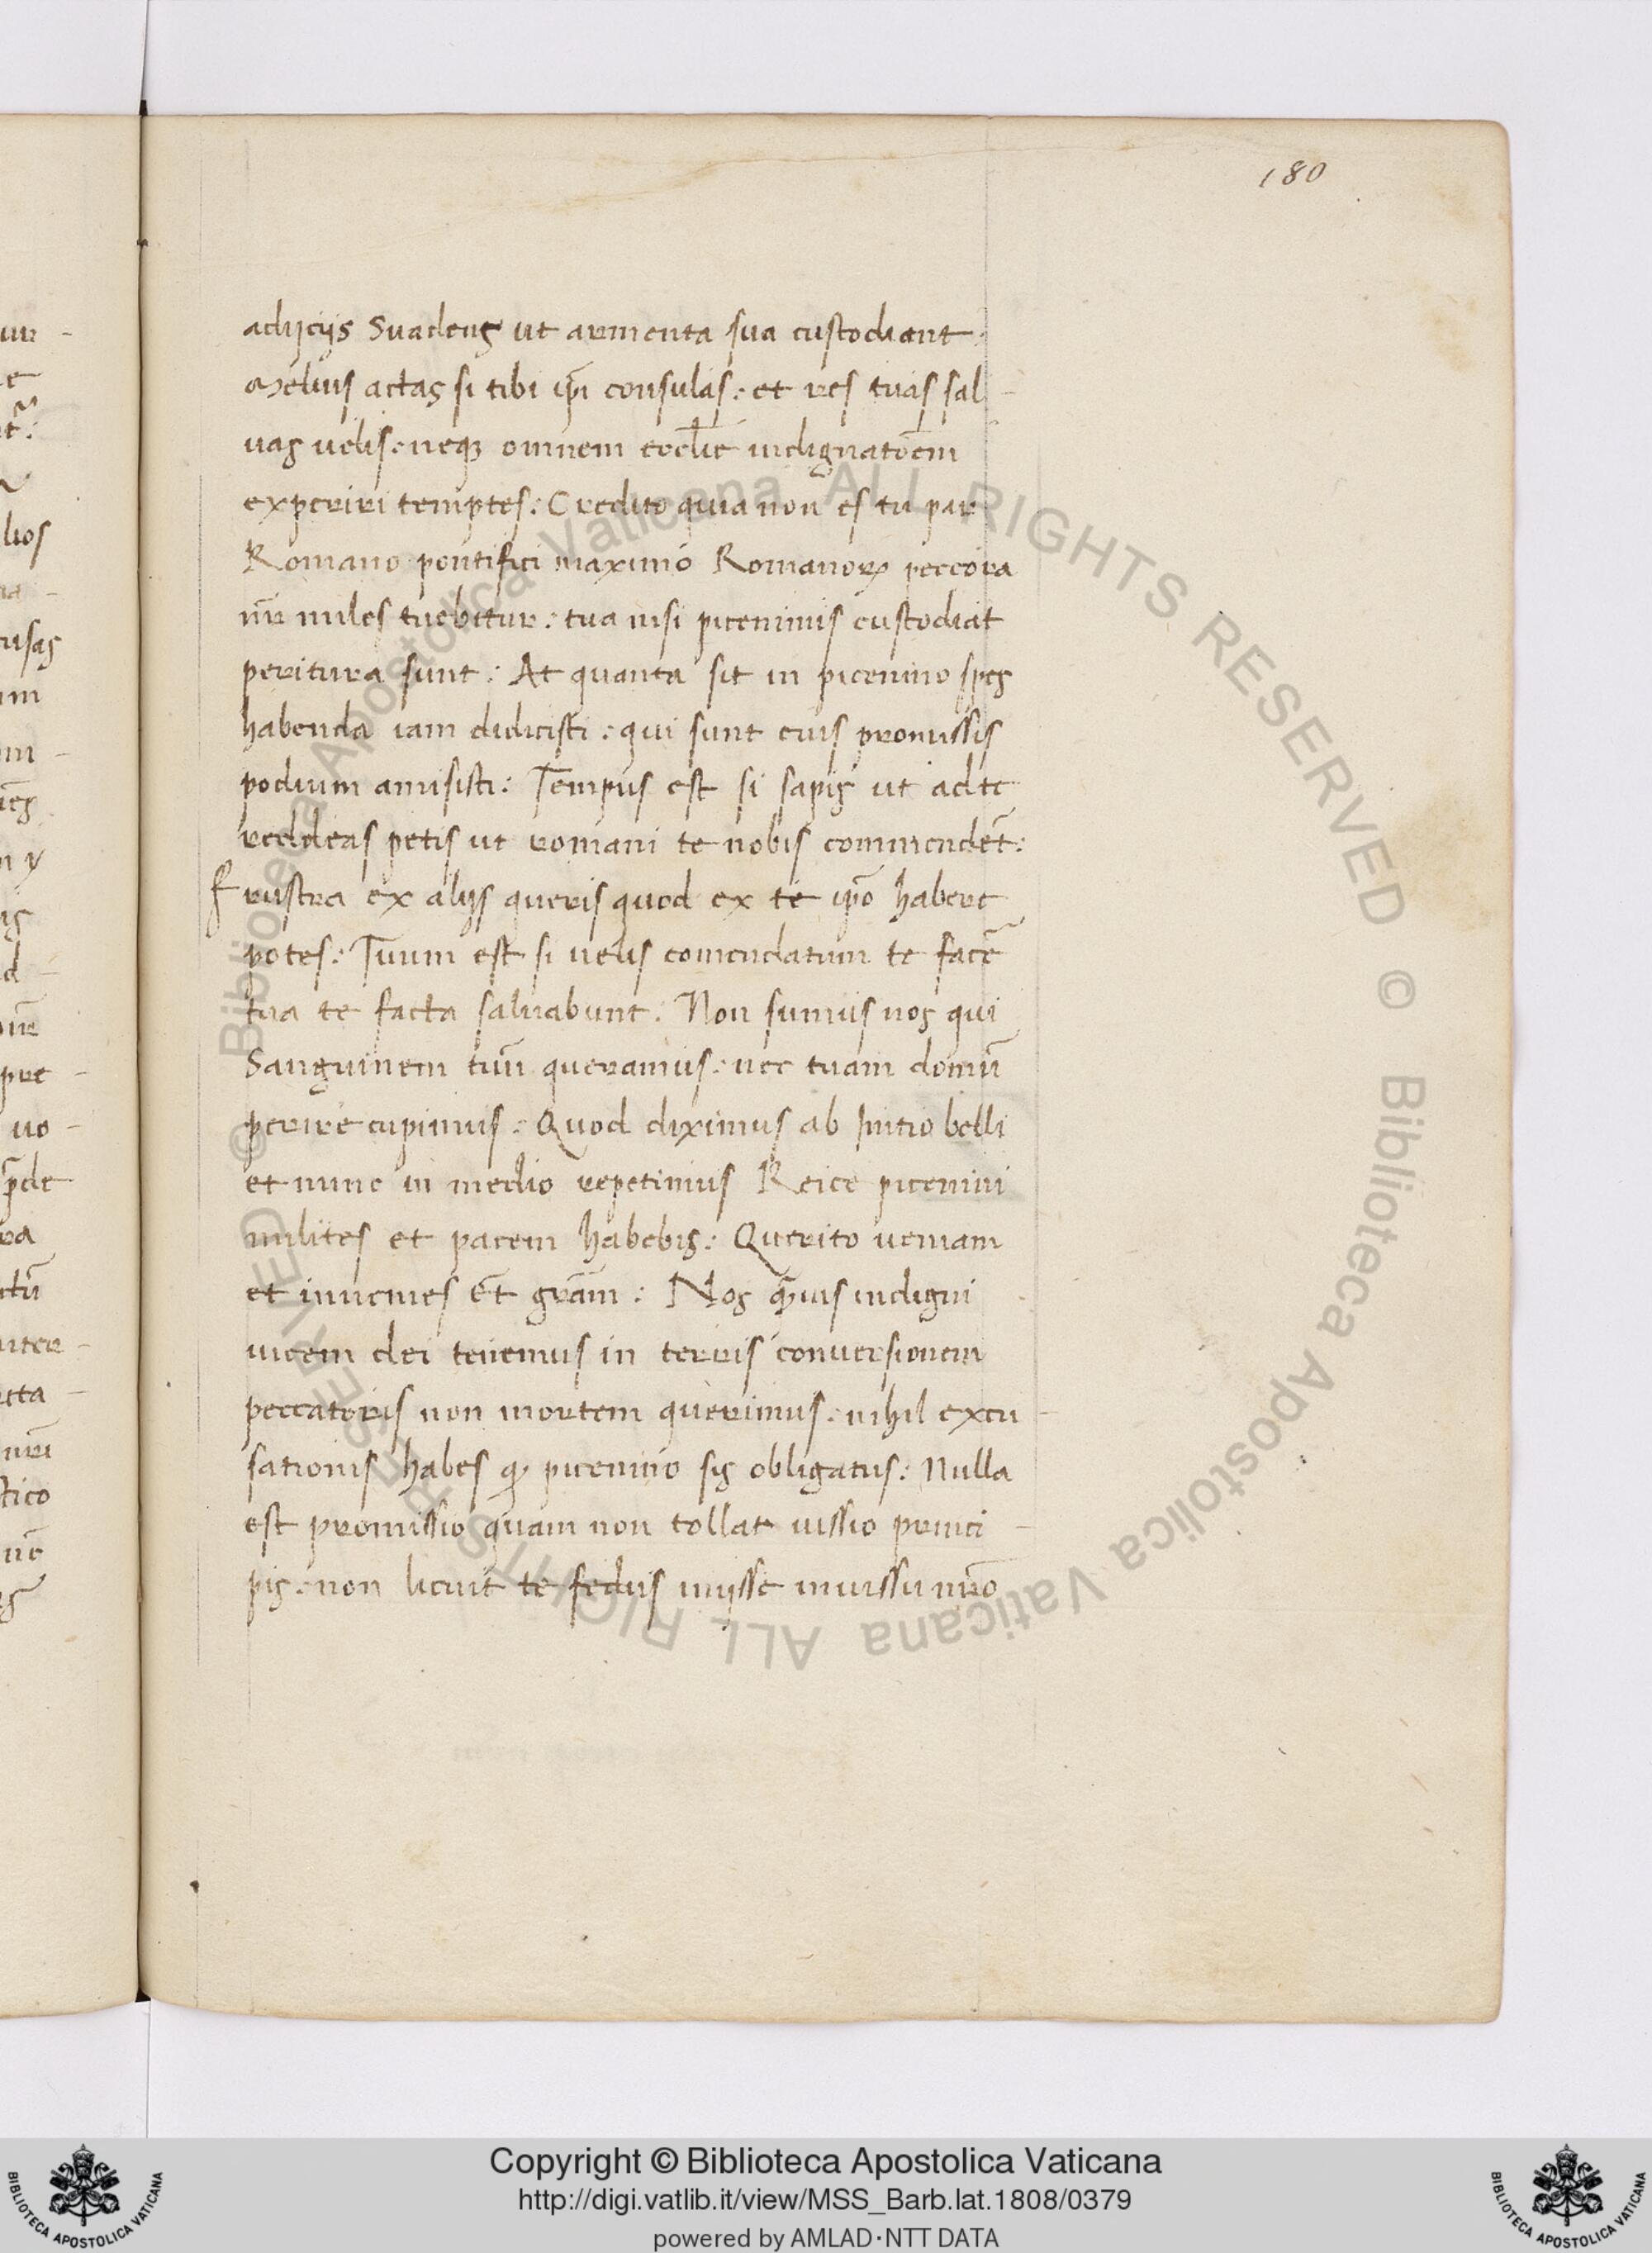 180
adijcijs Suadens ut armenta sua custodiant.
Melius actas si tibi ip̄i consulas: et res tuas sal-
uas uelis: neqꝫ omnem eccl̄ie indignatōem
experiri temptes: Credito quia non es tu par
Romano pontifici maximo Romanoꝝ peccora
nr̄ miles tuebitur: tua nisi piceninus custodiat
peritura sunt: At quanta sit in picenino spes
habenda iam didicisti: qui sunt eius promissis
podium amisisti: Tempus est si sapis ut ad te
reddeas petis ut romani te nobis commendēt:
frustra ex alijs queris quod ex te ip̄o habere
potes: Tuum est si uelis comendatum te facē
tua te facta saluabunt: Non sumus nos qui
Sanguinem tuū queramus: nec tuam domū
perire cupimus: Quod diximus ab Initio belli
et nunc in medio repetimus Reice picenini
milites et pacem habebis: Querito ueniam
et inuenies Et grām: Nos q̄uis indigni
uicem dei tenemus in terris conuersionem
peccatoris non mortem querimus: nihil excu-
sationis habes ꝙ picenino sis obligatus: Nulla
est promissio quam non tollat iussio princi-
pis: non licuit te fedus inijsse iniussu nr̄o
© Biblioteca Apostolica Vaticana ALL RIGHTS RESERVED © Biblioteca Apostolica Vaticana ALL RIGHTS RESERVED
Copyright © Biblioteca Apostolica Vaticana
http://digi.vatlib.it/view/MSS_Barb.lat.1808/0379
powered by AMLAD·NTT DATA
BIBLIOTECA APOSTOLICA VATICANA
BIBLIOTECA APOSTOLICA VATICANA